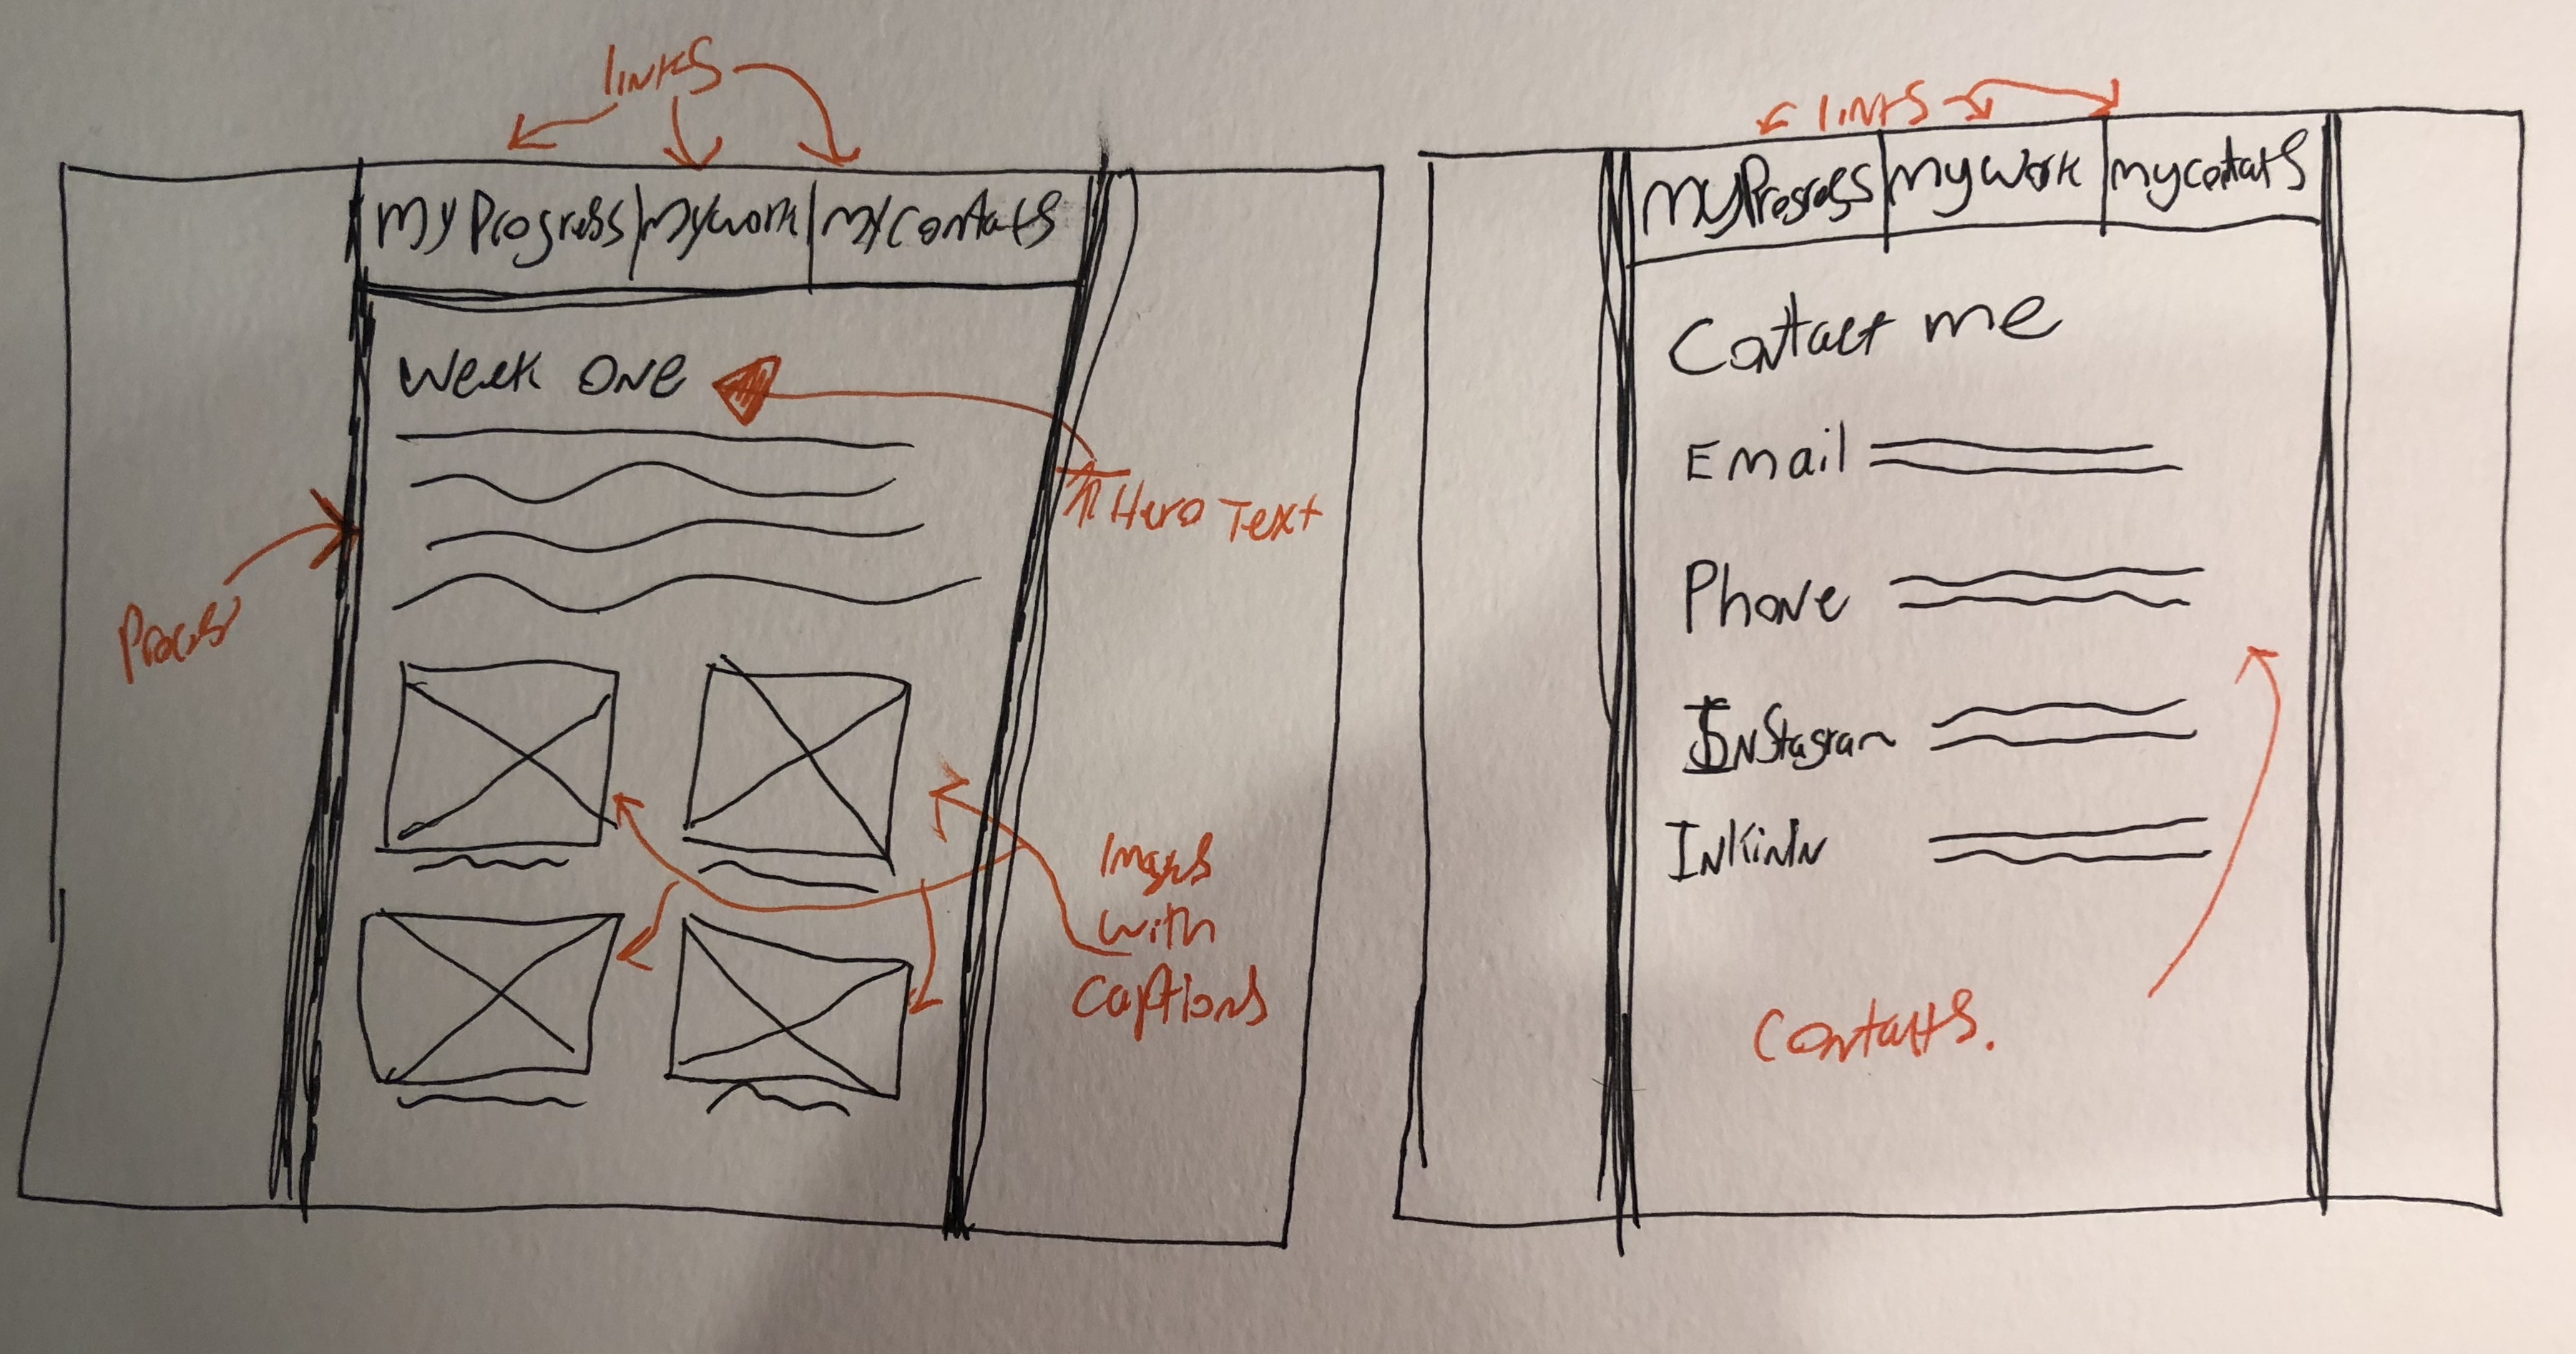 links
my Progress my work my contats
Week one
Hero Text
Images
with
captions
links
my Progress my work my contats
Contact me
Email
Phone
Instagram
InKinIn
Contatts.